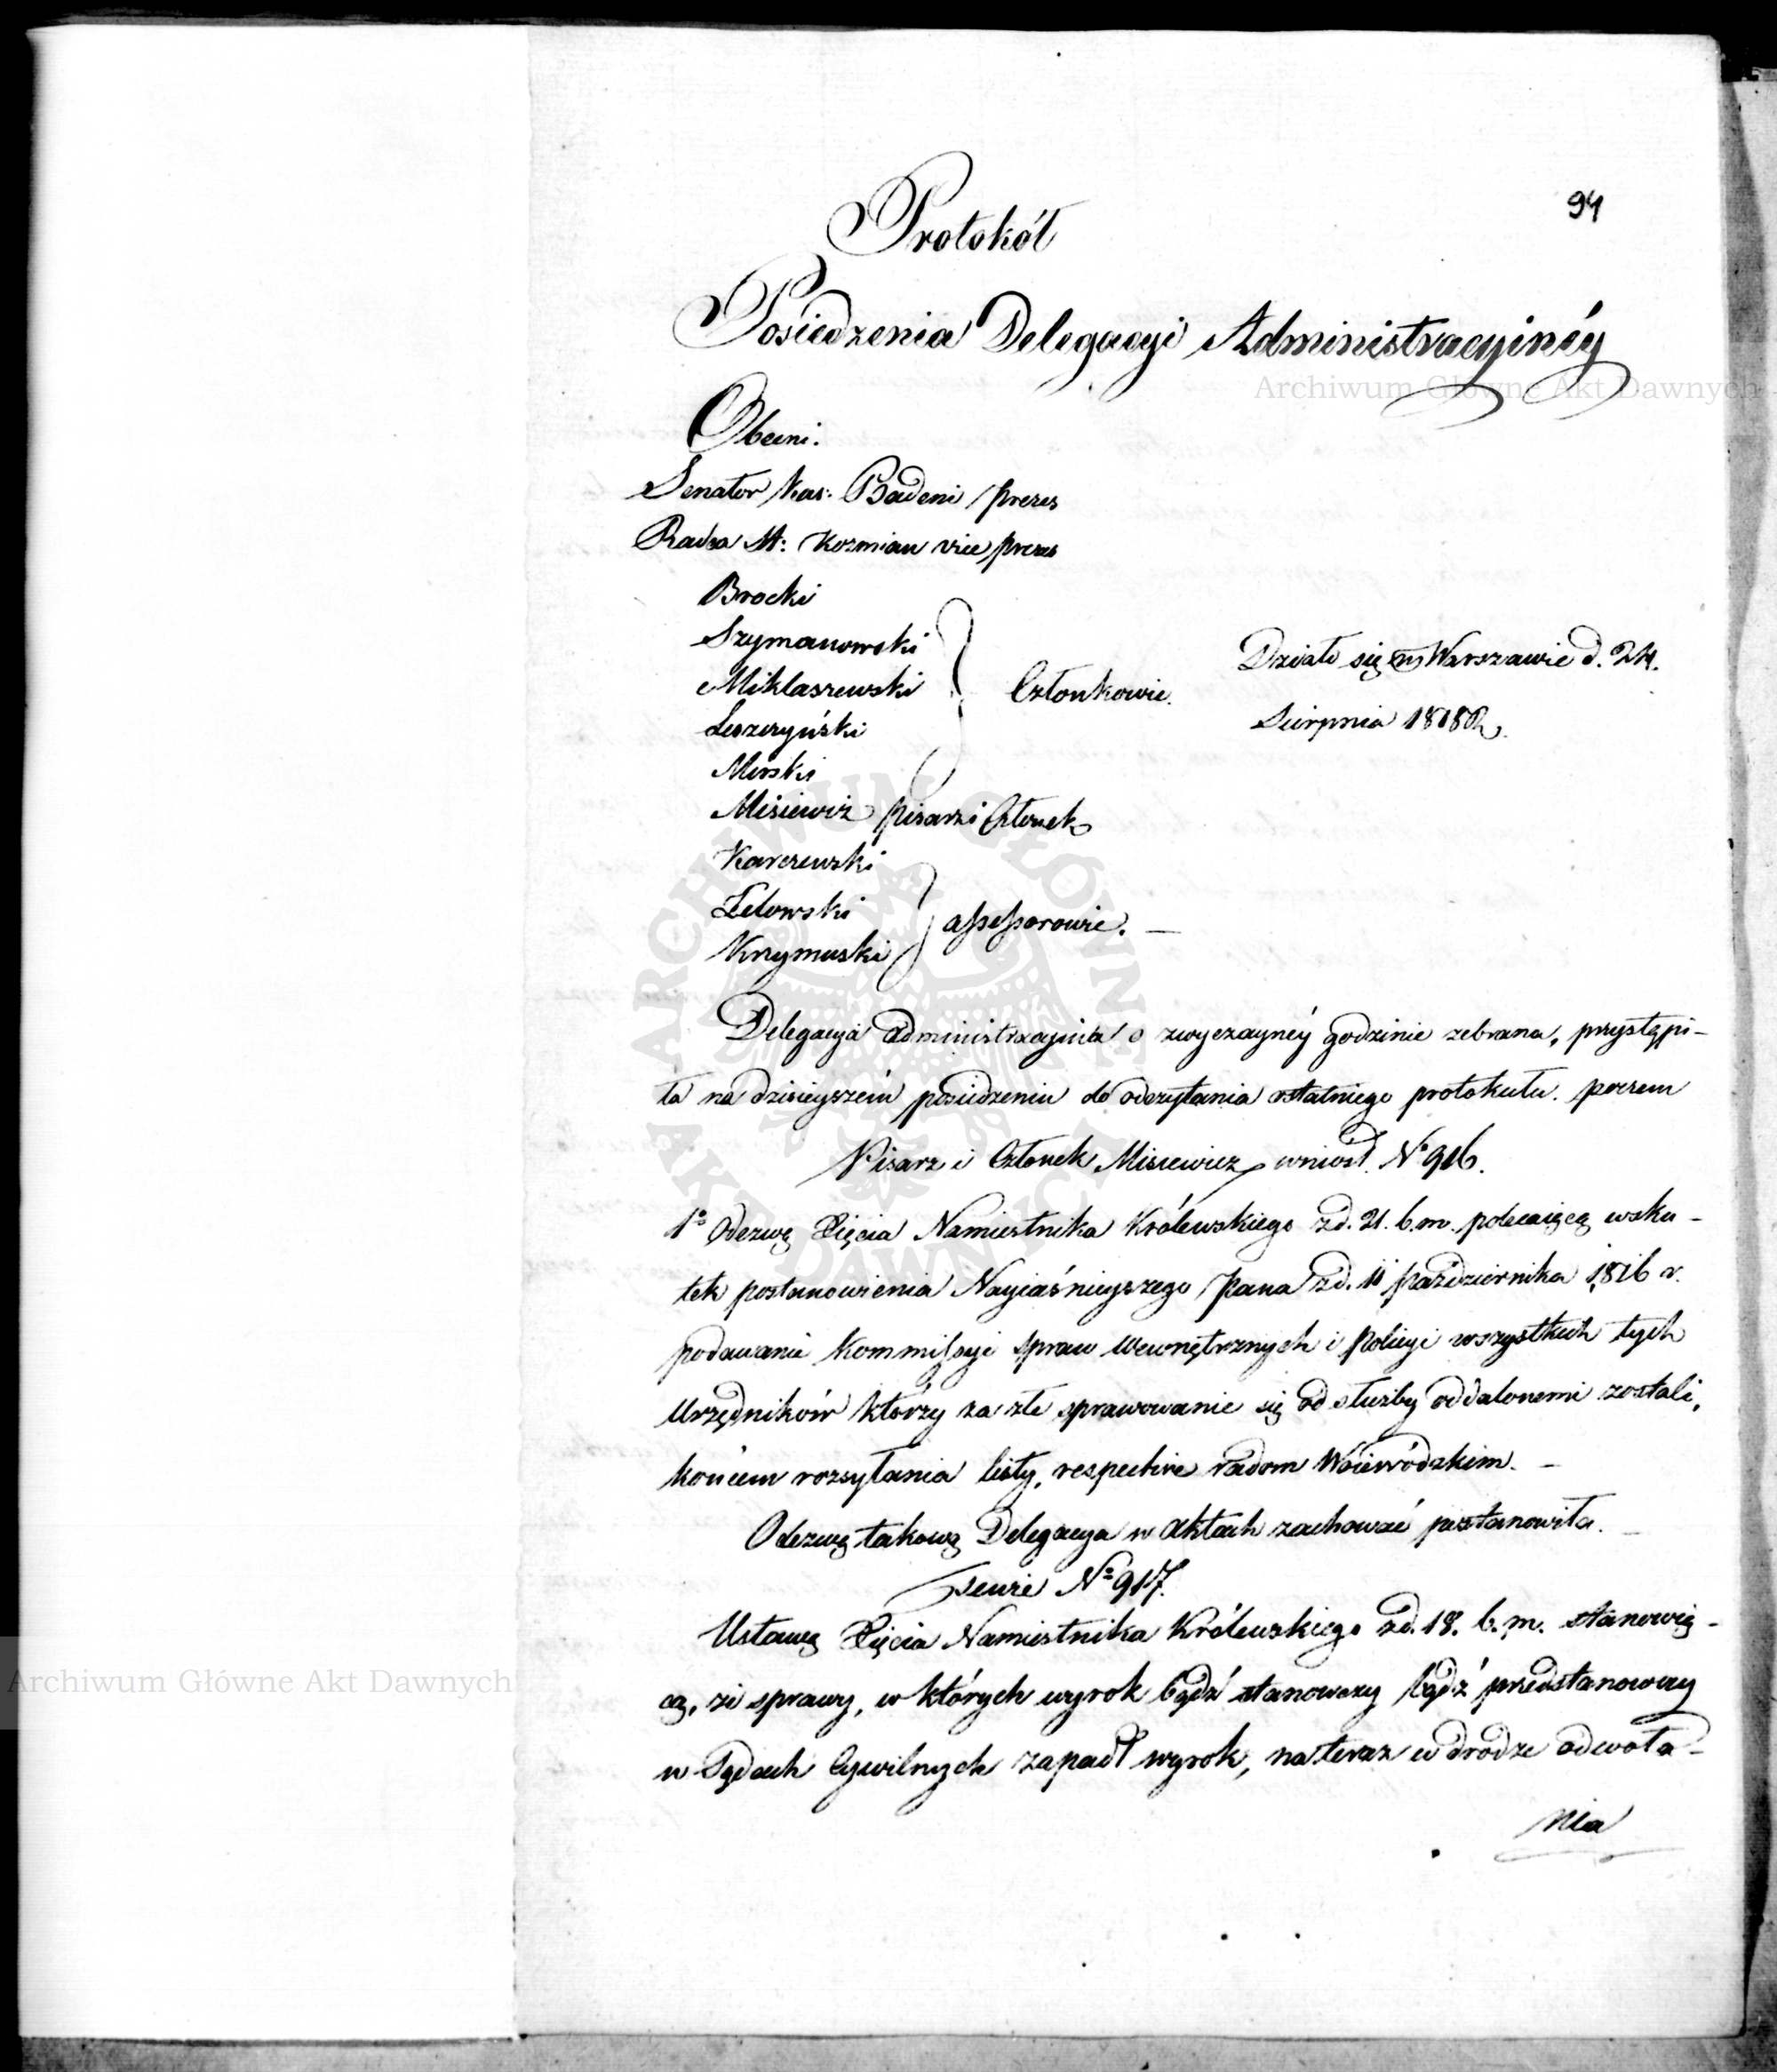 94
Protokół
Posiedzenia Delegacyi Administracyinéy
Obecni.
Senator Kas: Badeni Prezes
Radca St: Kozmian vice Prezes
Brocki
Szymanowski
Miklaszewski
Leszczyński
Mirski
Członkowie.
Działo się w Warszawie d. 24.
Sierpnia 1818 R.
Misiewicz Pisarz i Członek
Karczewski
Żelowski
Krzymuski
assessorowie. —
Delegacya administracyina o zwyczaynéy godzinie zebrana, przystąpi-
ła na dzisieyszém posiedzeniu do odczytania ostatniego protokułu. poczem
Pisarz i Członek Misiewicz wniosł. No 916.
1o Odezwę Xięcia Namiestnika Królewskiego z d. 21. b. m. polecaiącą wsku-
tek postanowienia Nayiaśnieyszego Pana z d. 11 października 1816 r.
podawanie Kommissyi spraw wewnętrznych i Policyi wszystkich tych
Urzędników którzy za złe sprawowanie się od służby oddalonemi zostali,
końcem rozsyłania listy, respective radom Woiewódzkim. —
Odezwę takową Delegacya w aktach zachować postanowiła. —
Tenże No 917.
Ustawę Xięcia Namiestnika Królewskiego z d. 18. b. m. stanowią-
cą, że sprawy, w których wyrok bądź stanowczy bądź przedstanowczy
w Sądach Cywilnych zapadł wyrok, na teraz w drodze odwoła-
nia
Archiwum Główne Akt Dawnych
Archiwum Główne Akt Dawnych
ARCHIWUM GŁÓWNE AKT DAWNYCH